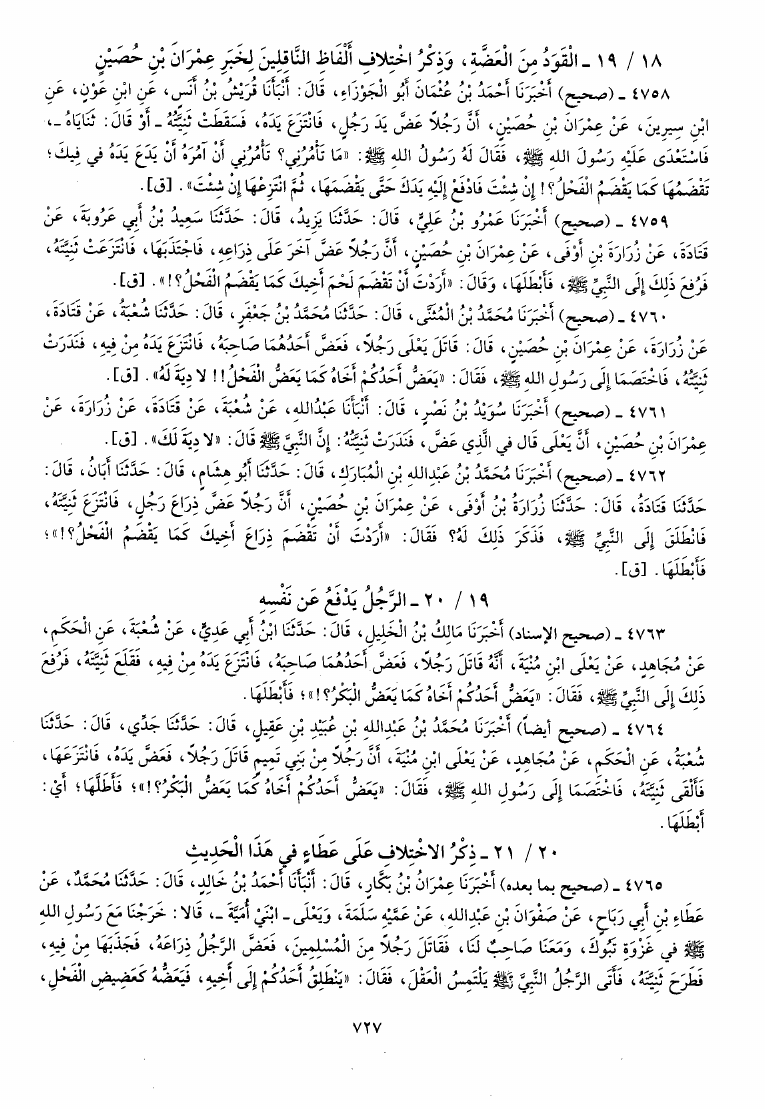 ١٨ / ١٩ ـ الْقَوَدُ مِنَ الْعَضَّةِ، وَذِكْرُ اخْتِلافِ أَلْفَاظِ النَّاقِلِينَ لِخَبَرِ عِمْرَانَ بْنِ حُصَيْنٍ
٤٧٥٨ ـ (صحيح) أَخْبَرَنَا أَحْمَدُ بْنُ عُثْمَانَ أَبُو الْجَوْزَاءِ، قَالَ: أَنْبَأَنَا قُرَيْشُ بْنُ أَنَسٍ، عَنِ ابْنِ عَوْنٍ، عَنِ
ابْنِ سِيرِينَ، عَنْ عِمْرَانَ بْنِ حُصَيْنٍ، أَنَّ رَجُلاً عَضَّ يَدَ رَجُلٍ، فَانْتَزَعَ يَدَهُ، فَسَقَطَتْ ثَنِيَّتُهُ ـ أَوْ قَالَ: ثَنَايَاهُ ـ،
فَاسْتَعْدَى عَلَيْهِ رَسُولَ اللهِ ﷺ، فَقَالَ لَهُ رَسُولُ اللهِ ﷺ: «مَا تَأْمُرُنِي؟ تَأْمُرُنِي أَنْ آمُرَهُ أَنْ يَدَعَ يَدَهُ فِي فِيكَ؛
تَقْضَمُهَا كَمَا يَقْضَمُ الْفَحْلُ؟! إِنْ شِئْتَ فَادْفَعْ إِلَيْهِ يَدَكَ حَتَّى يَقْضَمَهَا، ثُمَّ انْتَزِعْهَا إِنْ شِئْتَ». [ق].
٤٧٥٩ ـ (صحيح) أَخْبَرَنَا عَمْرُو بْنُ عَلِيٍّ، قَالَ: حَدَّثَنَا يَزِيدُ، قَالَ: حَدَّثَنَا سَعِيدُ بْنُ أَبِي عَرُوبَةَ، عَنْ
قَتَادَةَ، عَنْ زُرَارَةَ بْنِ أَوْفَى، عَنْ عِمْرَانَ بْنِ حُصَيْنٍ، أَنَّ رَجُلاً عَضَّ آخَرَ عَلَى ذِرَاعِهِ، فَاجْتَذَبَهَا، فَانْتَزَعَتْ ثَنِيَّتَهُ،
فَرُفِعَ ذَلِكَ إِلَى النَّبِيِّ ﷺ، فَأَبْطَلَهَا، وَقَالَ: «أَرَدْتَ أَنْ تَقْضَمَ لَحْمَ أَخِيكَ كَمَا يَقْضَمُ الْفَحْلُ؟!». [ق].
٤٧٦٠ ـ (صحيح) أَخْبَرَنَا مُحَمَّدُ بْنُ الْمُثَنَّى، قَالَ: حَدَّثَنَا مُحَمَّدُ بْنُ جَعْفَرٍ، قَالَ: حَدَّثَنَا شُعْبَةُ، عَنْ قَتَادَةَ،
عَنْ زُرَارَةَ، عَنْ عِمْرَانَ بْنِ حُصَيْنٍ، قَالَ: قَاتَلَ يَعْلَى رَجُلاً، فَعَضَّ أَحَدُهُمَا صَاحِبَهُ، فَانْتَزَعَ يَدَهُ مِنْ فِيهِ، فَنَدَرَتْ
ثَنِيَّتُهُ، فَاخْتَصَمَا إِلَى رَسُولِ اللهِ ﷺ، فَقَالَ: «يَعَضُّ أَحَدُكُمْ أَخَاهُ كَمَا يَعَضُّ الْفَحْلُ!! لا دِيَةَ لَهُ». [ق].
٤٧٦١ ـ (صحيح) أَخْبَرَنَا سُوَيْدُ بْنُ نَصْرٍ، قَالَ: أَنْبَأَنَا عَبْدُاللهِ، عَنْ شُعْبَةَ، عَنْ قَتَادَةَ، عَنْ زُرَارَةَ، عَنْ
عِمْرَانَ بْنِ حُصَيْنٍ، أَنَّ يَعْلَى قال فِي الَّذِي عَضَّ، فَنَدَرَتْ ثَنِيَّتُهُ: إِنَّ النَّبِيَّ ﷺ قَالَ: «لا دِيَةَ لَكَ». [ق].
٤٧٦٢ ـ (صحيح) أَخْبَرَنَا مُحَمَّدُ بْنُ عَبْدِاللهِ بْنِ الْمُبَارَكِ، قَالَ: حَدَّثَنَا أَبُو هِشَامٍ، قَالَ: حَدَّثَنَا أَبَانُ، قَالَ:
حَدَّثَنَا قَتَادَةُ، قَالَ: حَدَّثَنَا زُرَارَةُ بْنُ أَوْفَى، عَنْ عِمْرَانَ بْنِ حُصَيْنٍ، أَنَّ رَجُلاً عَضَّ ذِرَاعَ رَجُلٍ، فَانْتَزَعَ ثَنِيَّتَهُ،
فَانْطَلَقَ إِلَى النَّبِيِّ ﷺ، فَذَكَرَ ذَلِكَ لَهُ؟ فَقَالَ: «أَرَدْتَ أَنْ تَقْضَمَ ذِرَاعَ أَخِيكَ كَمَا يَقْضَمُ الْفَحْلُ؟!»؛
فَأَبْطَلَهَا. [ق].
١٩ / ٢٠ ـ الرَّجُلُ يَدْفَعُ عَن نَفْسِهِ
٤٧٦٣ ـ (صحيح الإسناد) أَخْبَرَنَا مَالِكُ بْنُ الْخَلِيلِ، قَالَ: حَدَّثَنَا ابْنُ أَبِي عَدِيٍّ، عَنْ شُعْبَةَ، عَنِ الْحَكَمِ،
عَنْ مُجَاهِدٍ، عَنْ يَعْلَى ابْنِ مُنْيَةَ، أَنَّهُ قَاتَلَ رَجُلاً، فَعَضَّ أَحَدُهُمَا صَاحِبَهُ، فَانْتَزَعَ يَدَهُ مِنْ فِيهِ، فَقَلَعَ ثَنِيَّتَهُ، فَرُفِعَ
ذَلِكَ إِلَى النَّبِيِّ ﷺ، فَقَالَ: «يَعَضُّ أَحَدُكُمْ أَخَاهُ كَمَا يَعَضُّ الْبَكْرُ؟!»؛ فَأَبْطَلَهَا.
٤٧٦٤ ـ (صحيح أيضاً) أَخْبَرَنَا مُحَمَّدُ بْنُ عَبْدِاللهِ بْنِ عُبَيْدِ بْنِ عَقِيلٍ، قَالَ: حَدَّثَنَا جَدِّي، قَالَ: حَدَّثَنَا
شُعْبَةُ، عَنِ الْحَكَمِ، عَنْ مُجَاهِدٍ، عَنْ يَعْلَى ابْنِ مُنْيَةَ، أَنَّ رَجُلاً مِنْ بَنِي تَمِيمٍ قَاتَلَ رَجُلاً، فَعَضَّ يَدَهُ، فَانْتَزَعَهَا،
فَأَلْقَى ثَنِيَّتَهُ، فَاخْتَصَمَا إِلَى رَسُولِ اللهِ ﷺ، فَقَالَ: «يَعَضُّ أَحَدُكُمْ أَخَاهُ كَمَا يَعَضُّ الْبَكْرُ؟!»؛ فَأَطَلَّهَا؛ أَيْ:
أَبْطَلَهَا.
٢٠ / ٢١ ـ ذِكْرُ الاخْتِلافِ عَلَى عَطَاءٍ فِي هَذَا الْحَدِيثِ
٤٧٦٥ ـ (صحيح بما بعده) أَخْبَرَنَا عِمْرَانُ بْنُ بَكَّارٍ، قَالَ: أَنْبَأَنَا أَحْمَدُ بْنُ خَالِدٍ، قَالَ: حَدَّثَنَا مُحَمَّدٌ، عَنْ
عَطَاءِ بْنِ أَبِي رَبَاحٍ، عَنْ صَفْوَانَ بْنِ عَبْدِاللهِ، عَنْ عَمَّيْهِ سَلَمَةَ، وَيَعْلَى ـ ابْنَيْ أُمَيَّةَ ـ، قَالا: خَرَجْنَا مَعَ رَسُولِ اللهِ
ﷺ فِي غَزْوَةِ تَبُوكَ، وَمَعَنَا صَاحِبٌ لَنَا، فَقَاتَلَ رَجُلاً مِنَ الْمُسْلِمِينَ، فَعَضَّ الرَّجُلُ ذِرَاعَهُ، فَجَذَبَهَا مِنْ فِيهِ،
فَطَرَحَ ثَنِيَّتَهُ، فَأَتَى الرَّجُلُ النَّبِيَّ ﷺ يَلْتَمِسُ الْعَقْلَ، فَقَالَ: «يَنْطَلِقُ أَحَدُكُمْ إِلَى أَخِيهِ، فَيَعَضُّهُ كَعَضِيضِ الْفَحْلِ،
٧٢٧